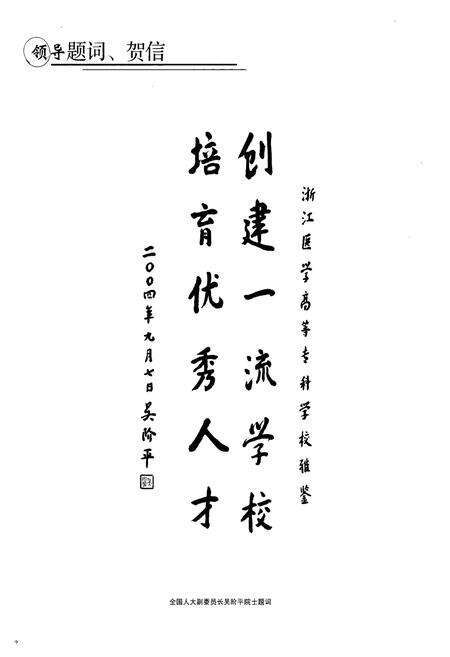 领导题词、贺信
浙江医学高等专科学校雅鉴
创建一流学校
培育优秀人才
二〇〇四年九月七日 吴阶平
全国人大副委员长吴阶平院士题词